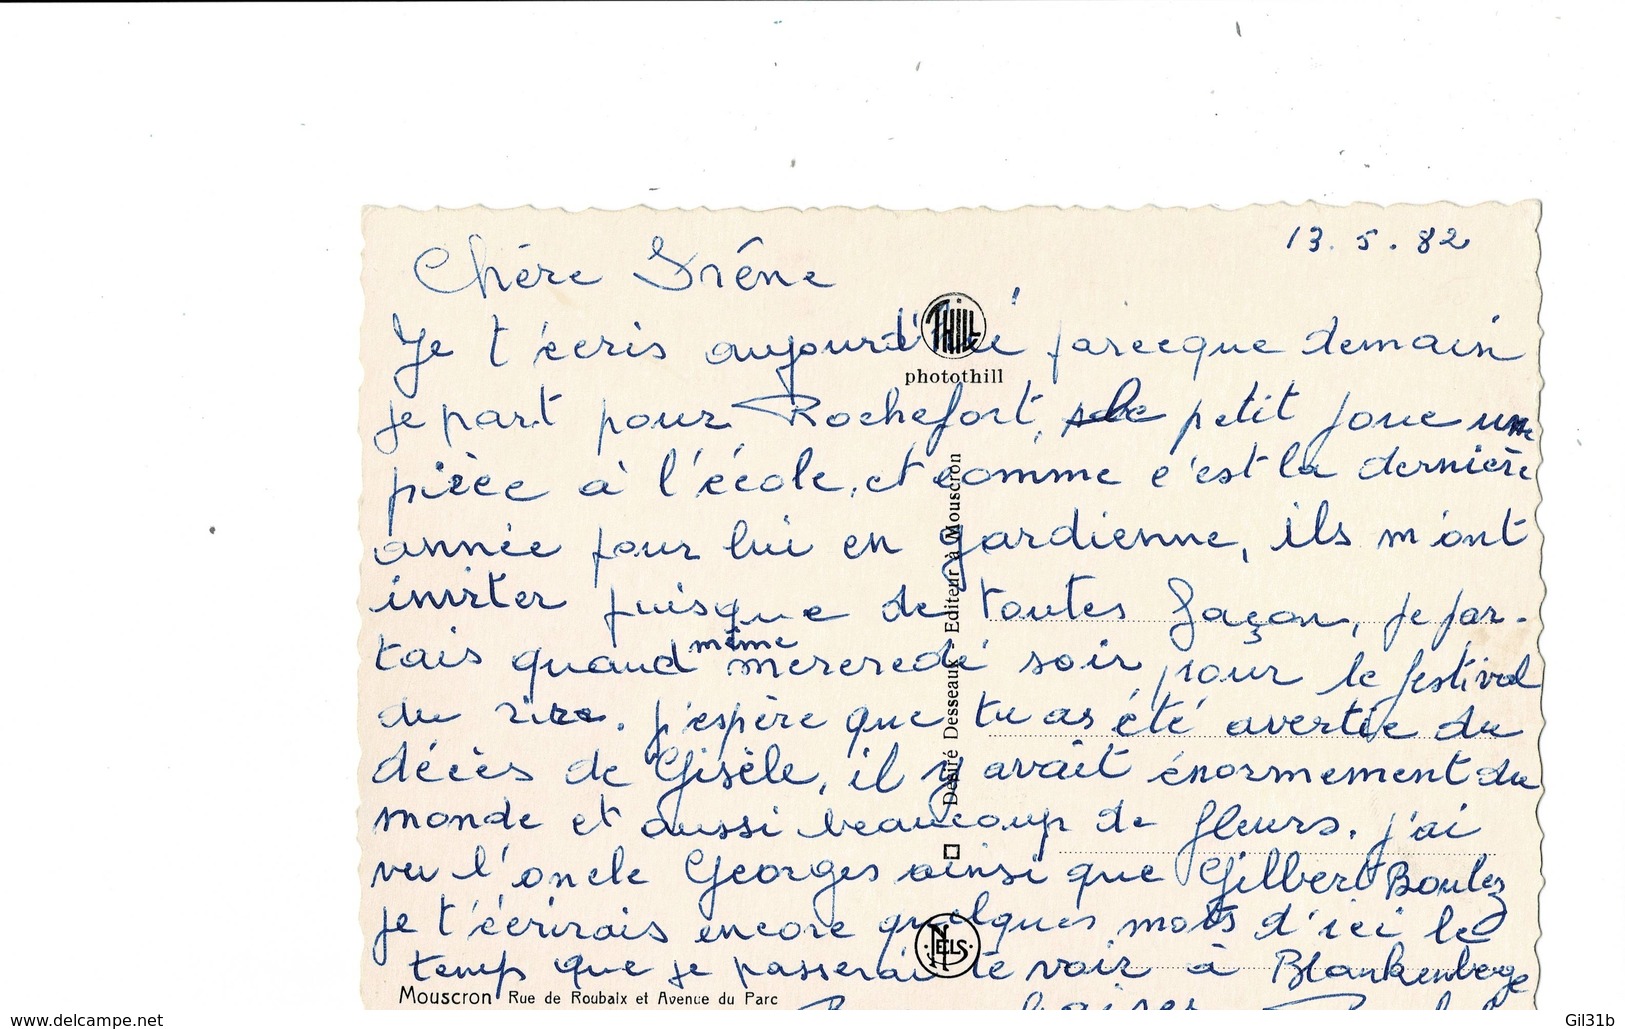 13.5.82
Chère Irène
Je t'écris aujourd'hui parceque demain
je part pour Rochefort, le petit joue une
pièce à l'école, et comme c'est la dernière
année pour lui en gardienne, ils m'ont
inviter puisque de toutes façon, je par-
tais quand même mercredi soir pour le festival
du rire. j'espère que tu as été avertie du
décès de Gisèle, il y avait énormement du
monde et aussi beaucoup de fleurs. j'ai
vu l'oncle Georges ainsi que Gilbert Boulez
je t'écrirais encore quelques mots d'ici le
temps que je passerai te voir à Blankenberge
baises
THILL
photothill
Désiré Desseaux - Editeur à Mouscron
NELS
Mouscron Rue de Roubaix et Avenue du Parc
www.delcampe.net
Gil31b